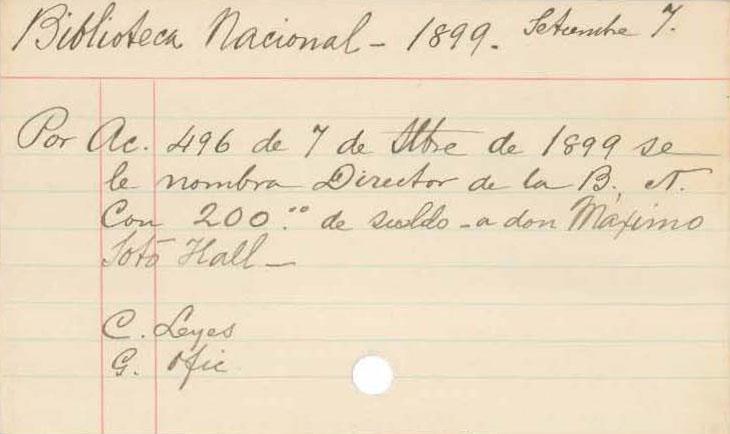 Biblioteca Nacional - 1899. Setiembre 7.
Por Ac. 496 de 7 de Stbre de 1899 se
le nombra Director de la B. N.
Con 200.00 de sueldo - a don Máximo
Soto Hall -
C. Leyes
G. Ofic